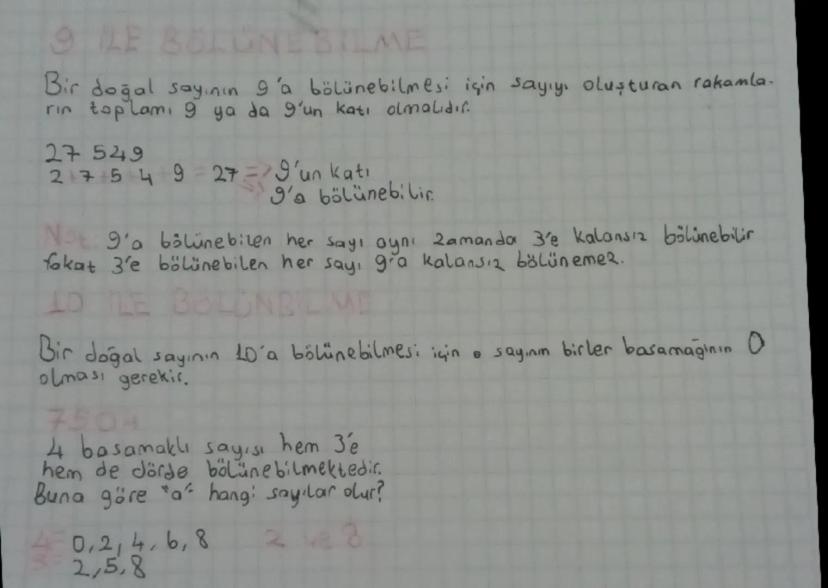 9 İLE BÖLÜNEBİLME
Bir doğal sayının 9'a bölünebilmesi için sayıyı oluşturan rakamla-
rın toplamı 9 ya da 9'un katı olmalıdır.
27 549
2+7+5+4+9=27=> 9'un katı
9'a bölünebilir.
Not: 9'a bölünebilen her sayı aynı zamanda 3'e kalansız bölünebilir
fakat 3'e bölünebilen her sayı 9'a kalansız bölünemez.
10 İLE BÖLÜNBİLME
Bir doğal sayının 10'a bölünebilmesi için sayının birler basamağının 0
olması gerekir.
4 basamaklı sayısı hem 3'e
hem de dörde bölünebilmektedir.
Buna göre "a" hangi sayılar olur?
0,2,4,6,8 2 ve 8
2,5,8